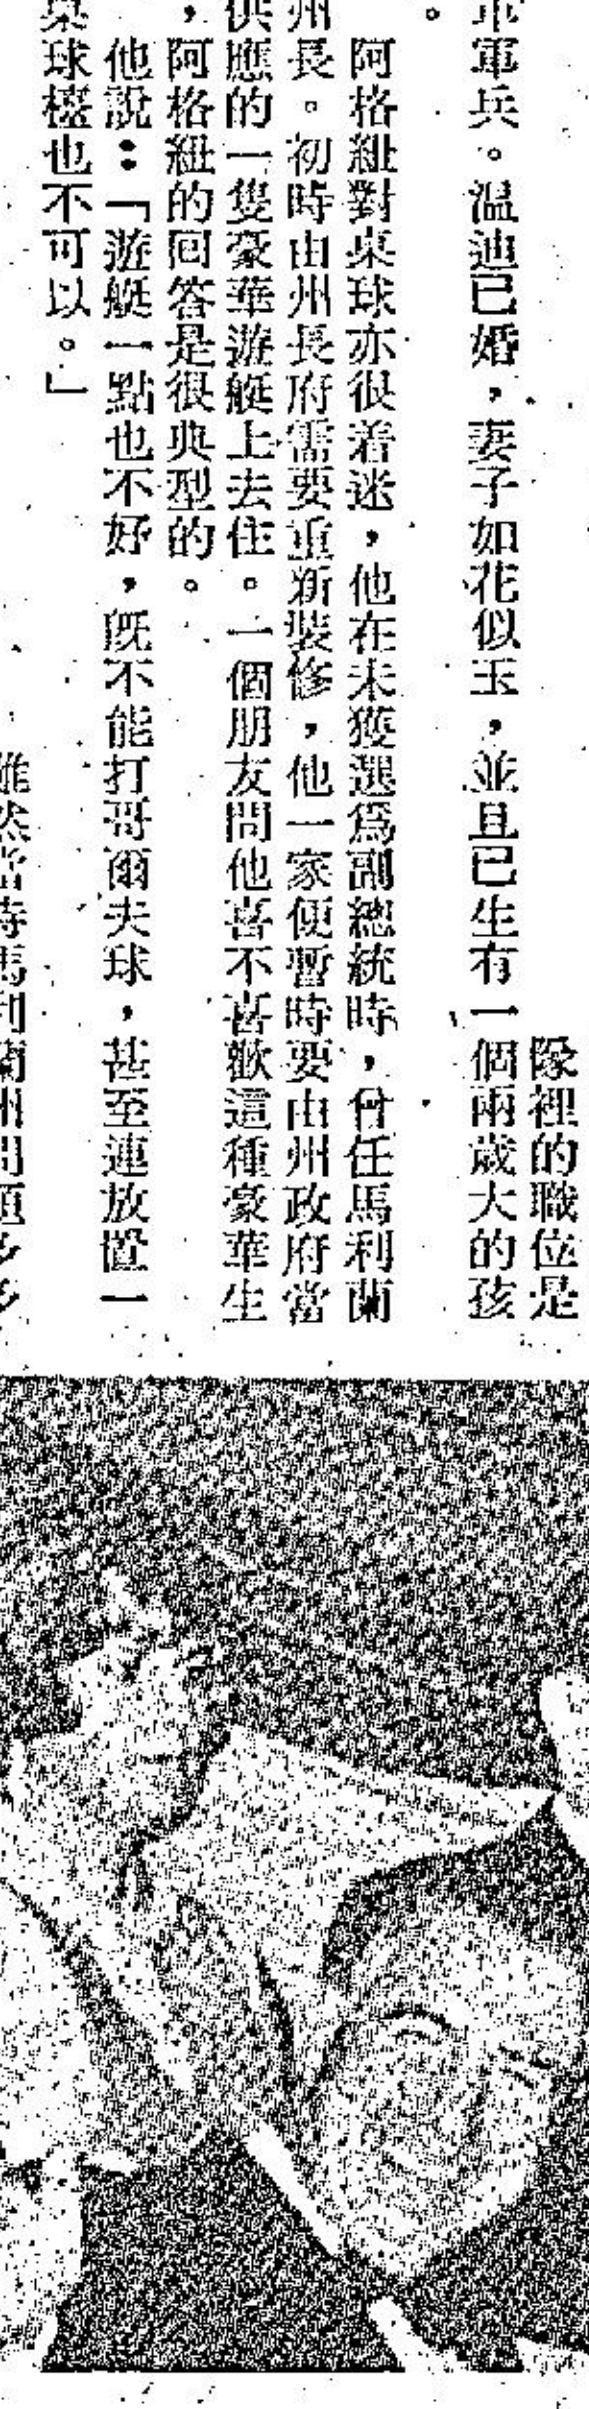 隊裡的職位是
軍兵。溫迪已婚，妻子如花似玉，並且已生有一個兩歲大的孩
。
阿格紐對桌球亦很着迷，他在未獲選爲副總統時，曾任馬利蘭
州長。初時由州長府需要重新裝修，他一家便暫時要由州政府當
供應的一隻豪華游艇上去住。一個朋友問他喜不喜歡這種豪華生
，阿格紐的回答是很典型的。
他說：「游艇一點也不好，既不能打哥爾夫球，甚至連放置一
桌球檯也不可以。」
雖然當時馬利蘭州問題多多